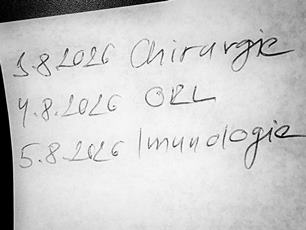 3.8.2026 Chirurgie
4.8.2026 ORL
5.8.2026 Imunologie